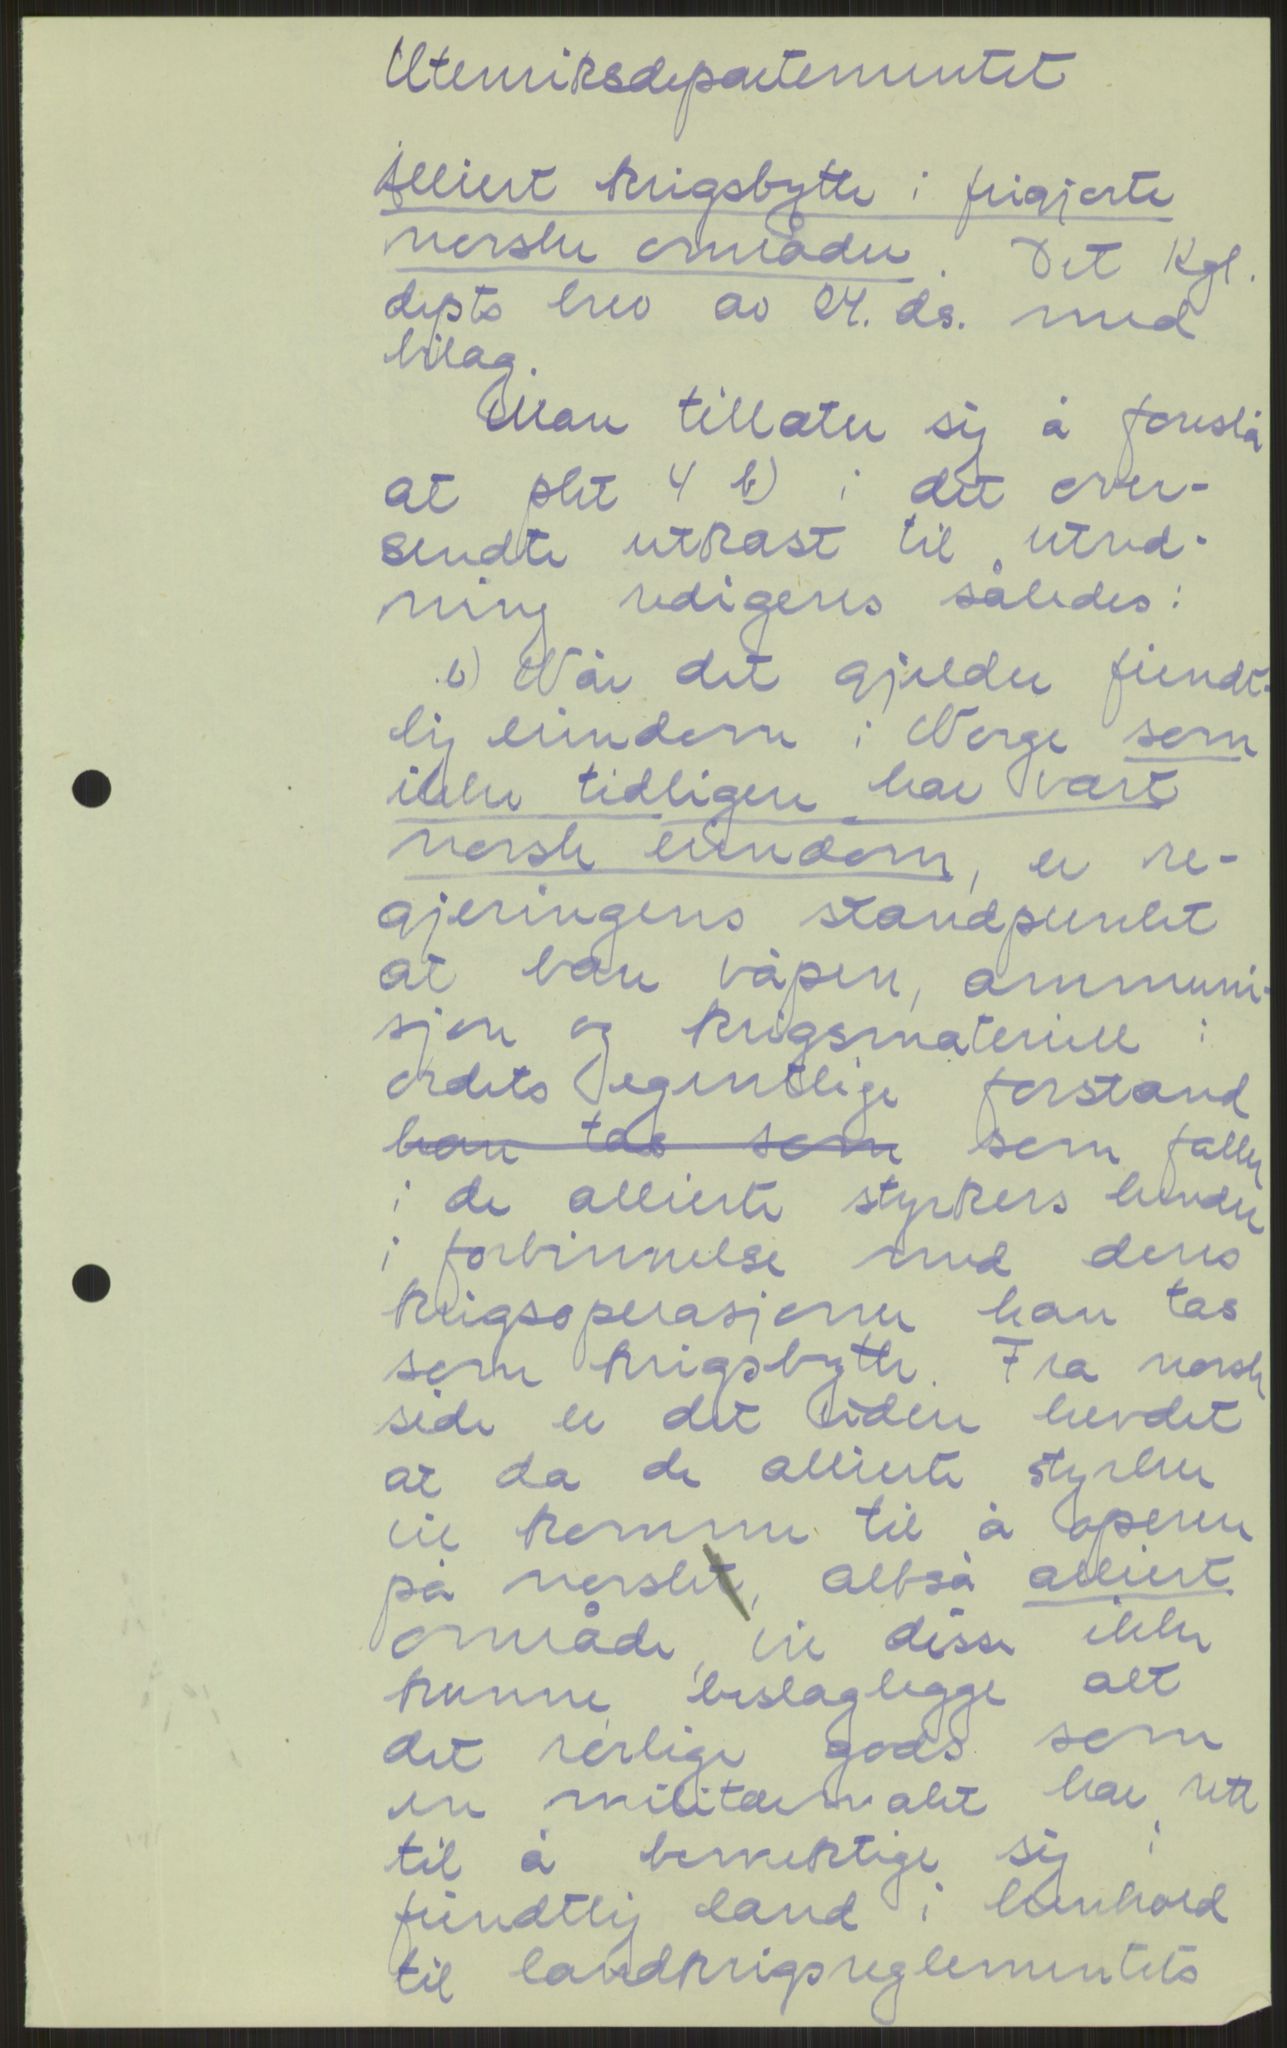 Utenriksdepartementet
Alliert krigsbytte i frigjorte
norske områder. Det Kgl.
depts brev av 24. ds. med
bilag.
Man tillater sig å foreslå
at pkt 4 b) i det over-
sendte utkast til utred-
ning redigeres således:
b) Når det gjelder fiendt-
lig eiendom i Norge som
ikke tidligere har vært
norsk eiendom, er re-
gjeringens standpunkt
at bare våpen, ammuni-
sjon og krigsmateriell i
ordets egentlige forstand
kan tas som som faller
i de allierte styrkers hender
i forbinnelse med deres
krigsoperasjoner kan tas
som krigsbytte. Fra norsk
side er det videre hevdet
at da de allierte styrker
vil komme til å operere
på norsk, altså alliert
område, vil disse ikke
kunne beslaglegge alt
det rørlige gods som
en militærmakt har rett
til å bemektige sig i
fiendtlig land i henhold
til landkrigsreglementets